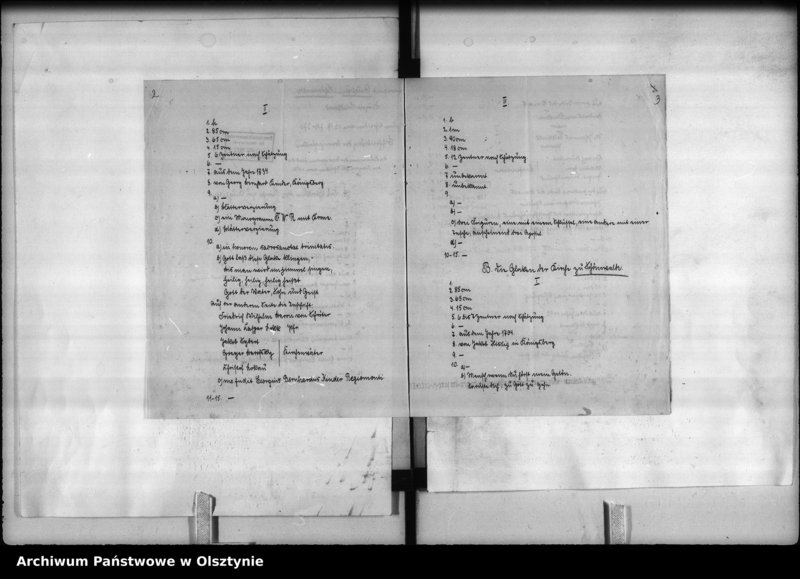 2.
II
1. b
2. 85 cm
3. 65 cm
4. 15 cm
5. 6 Zentner nach Schätzung
6. —
7. aus dem Jahre 1734
8. von Georg Bernhard Kinder, Königsberg
9.
a) —
b) Blätterverzierung
c) ein Monogramm F W R mit Krone.
d) Blätterverzierung
10.
a) in honorem sacrosanctae trinitatis.
b) Gott laß diese Glocke klingen,
das man wird im Himmel singen,
heilig, heilig, heilig heißt
Gott der Vater, Sohn und Geist
auf der anderen Seite die Inschrift
Friedrich Wilhelm Baron von
Johann
Jakob
Kirchenväter
Christof
c) me fudit Georgius Bernhardus Kinder Regiomonti
11-15. —
3
II
1. b
2. 1 m
3. cm
4. 18 cm
5. 12 Zentner nach Schätzung
6. —
7. unbekannt
8. unbekannt
9.
a) —
b) —
c) drei Figuren, eine mit einem Schlüssel, eine andere mit einer
Tasche, anscheinend drei Apostel
d) —
10-15. —
B. Die Glocken der Kirche zu Schönwalde.
I
1.
2. 85 cm
3. 65 cm
4. 15 cm
5. 6 bis 7 Zentner nach Schätzung
6. —
7. aus dem Jahre
8. von Jakob in Königsberg
9. —
10. a) —
b) Mensch wenn du hörst mein Getön.
zu Gott zu gehn
Archiwum Państwowe w Olsztynie